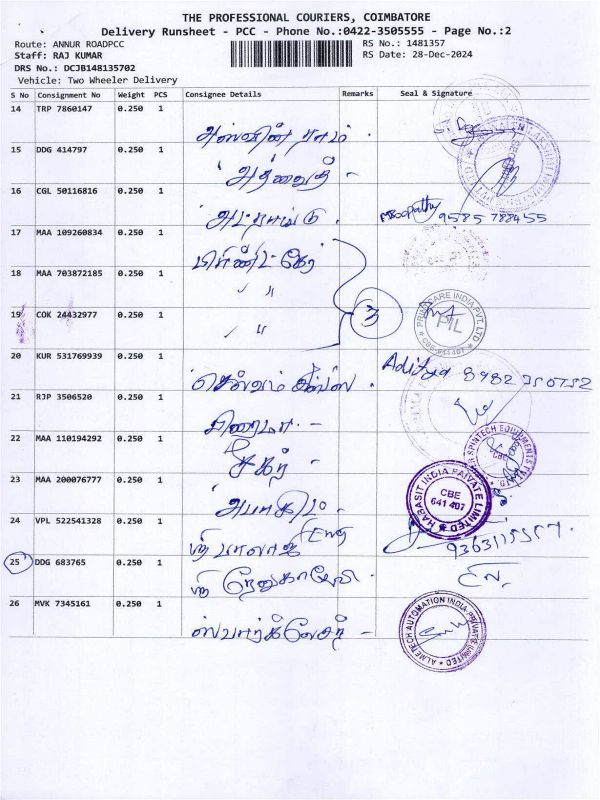 THE PROFESSIONAL COURIERS, COIMBATORE
Delivery Runsheet - PCC - Phone No.:0422-3505555 - Page No.:2
Route: ANNUR ROADPCC
RS No.: 1481357
Staff: RAJ KUMAR
RS Date: 28-Dec-2024
DRS No.: DCJB148135702
Vehicle: Two Wheeler Delivery
S No Consignment No Weight PCS Consignee Details Remarks Seal & Signature
14 TRP 7860147 0.250 1
அஸ்வின் ராம்
15 DDG 414797 0.250 1
அத்வைத் -
16 CGL 50116816 0.250 1
Boopathy 9585 788455
17 MAA 109260834 0.250 1
18 MAA 703872185 0.250 1
" "
3
19 COK 24432977 0.250 1
" "
PRIMACARE INDIA PVT. LTD
PIL
CBE-641407
20 KUR 531769939 0.250 1
Aditya
21 RJP 3506520 0.250 1
22 MAA 110194292 0.250 1
சேகர் -
SPINTECH EQUIPMENTS PVT
23 MAA 200076777 0.250 1
HABASIT INDIA PRIVATE LIMITED
CBE
641 407
24 VPL 522541328 0.250 1
ஸ்ரீ பாலாஜி Eng
25 DDG 683765 0.250 1
ஸ்ரீ ரேணுகாதேவி
26 MVK 7345161 0.250 1
ALMETECH AUTOMATION INDIA PRIVATE LIMITED